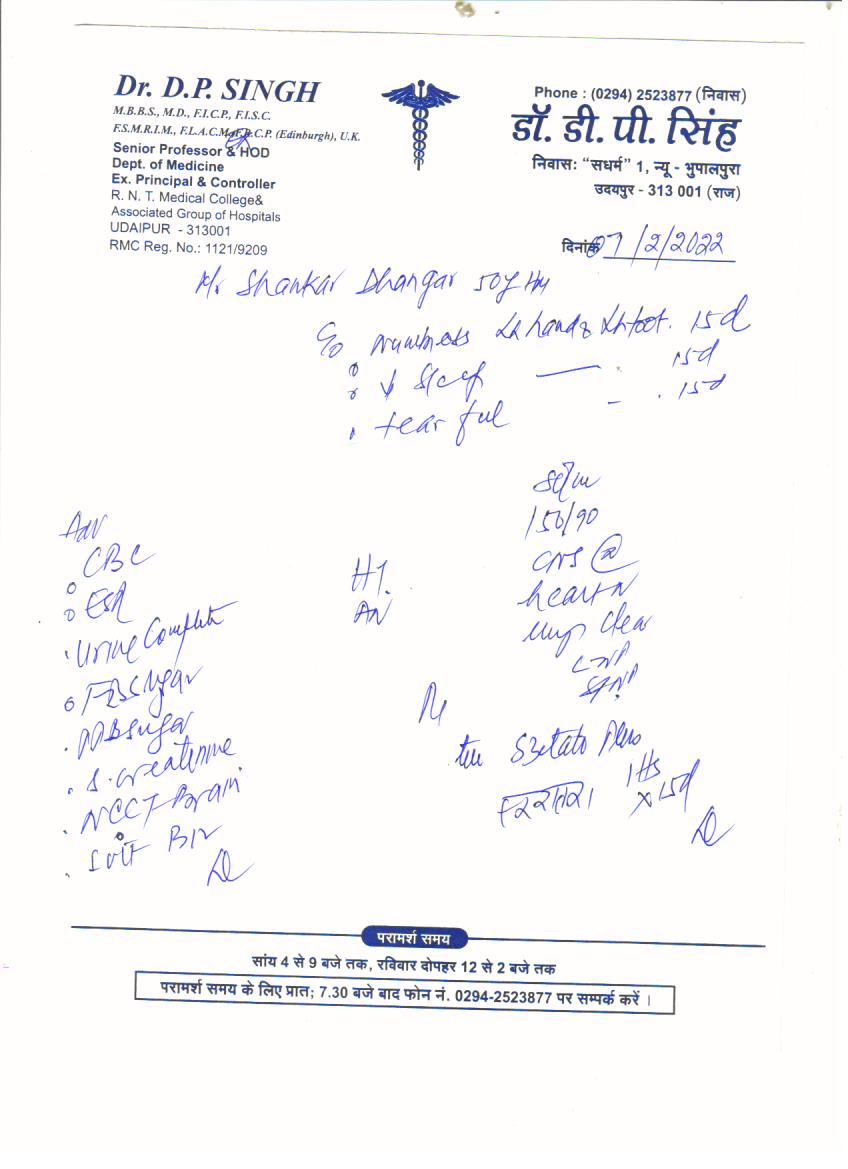 Dr. D.P. SINGH
M.B.B.S., M.D., F.I.C.P., F.I.S.C.
F.S.M.R.I.M., F.L.A.C.M., F.R.C.P. (Edinburgh), U.K.
Senior Professor & HOD
Dept. of Medicine
Ex. Principal & Controller
R. N. T. Medical College&
Associated Group of Hospitals
UDAIPUR - 313001
RMC Reg. No.: 1121/9209
Phone : (0294) 2523877 (निवास)
डॉ. डी. पी. सिंह
निवास: "सधर्म" 1, न्यू - भुपालपुरा
उदयपुर - 313 001 (राज)
दिनांक 07/2/2022
Mr Shankar Dhangar 50y
C/o Numbness Lt hand & Lt foot. 15d
↓ Sleep — 15d
tearful - 15d
150/90
CNS
heart N
lungs clear
Adv
CBC
ESR
Urine Complete
FBSugar
PPBSugar
S. creatinine
NCCT Brain
B12
HT.
AN
Plus
1 HS
x 15d
परामर्श समय
सांय 4 से 9 बजे तक, रविवार दोपहर 12 से 2 बजे तक
परामर्श समय के लिए प्रात; 7.30 बजे बाद फोन नं. 0294-2523877 पर सम्पर्क करें ।